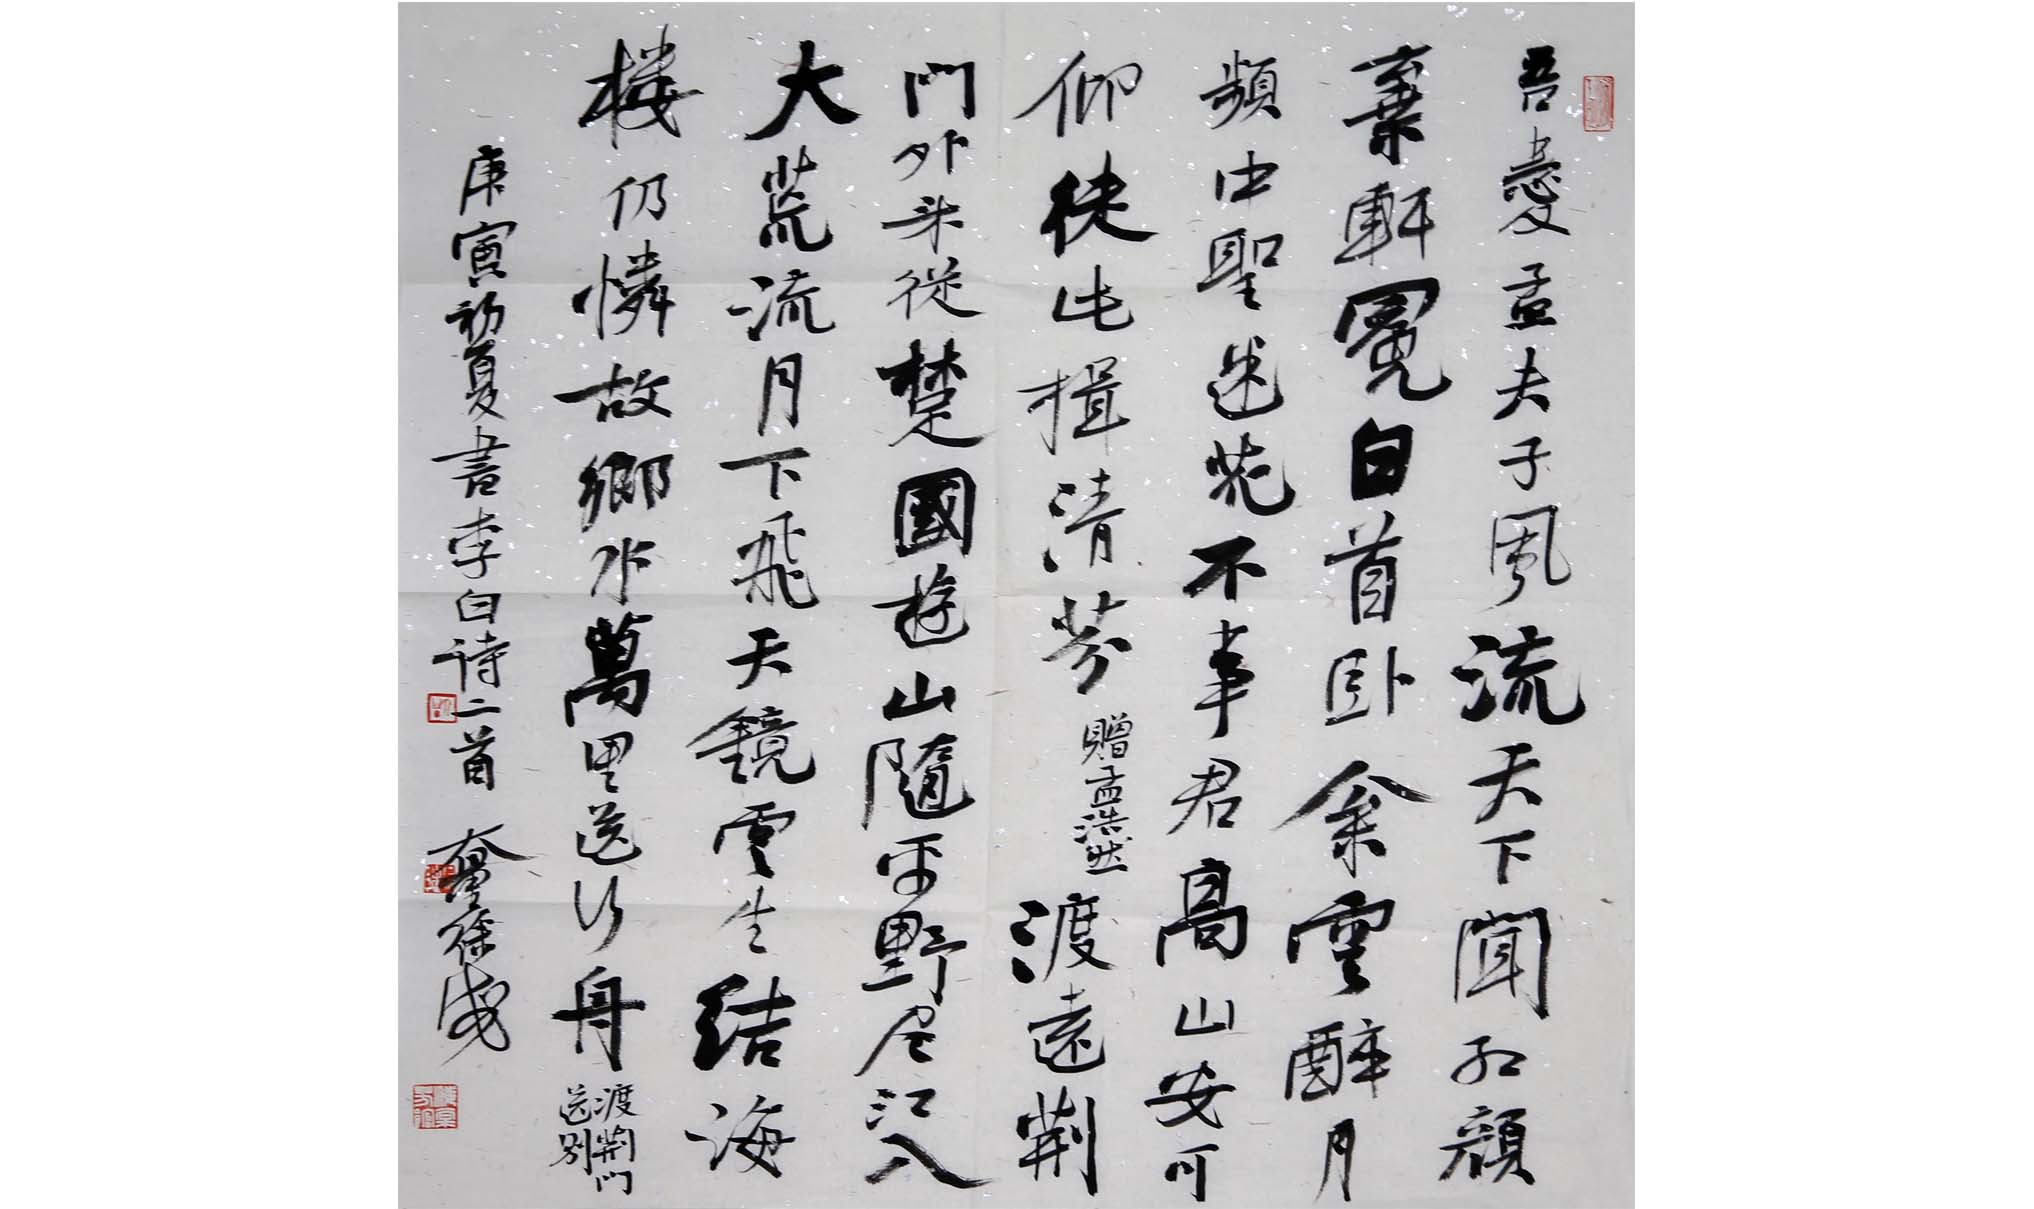 吾愛孟夫子風流天下聞紅顔
棄軒冕白首卧松雲醉月
頻中聖迷花不事君高山安可
仰徒此揖清芬
贈孟浩然
渡遠荆
門外来從楚國遊山隨平野尽江入
大荒流月下飛天鏡雲生結海
楼仍憐故鄉水萬里送行舟
渡荆門
送别
庚寅初夏書李白诗二首